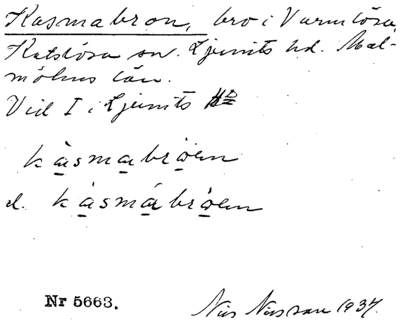 Kasmabron, bro i Värmlösa,
Katslösa sn. Ljunits hd. Mal-
möhus län.
Vid I i Ljunits HD
kàsmabròen
el. kàsmábròen
Nr 5663.
Nils Nilsson 1937.